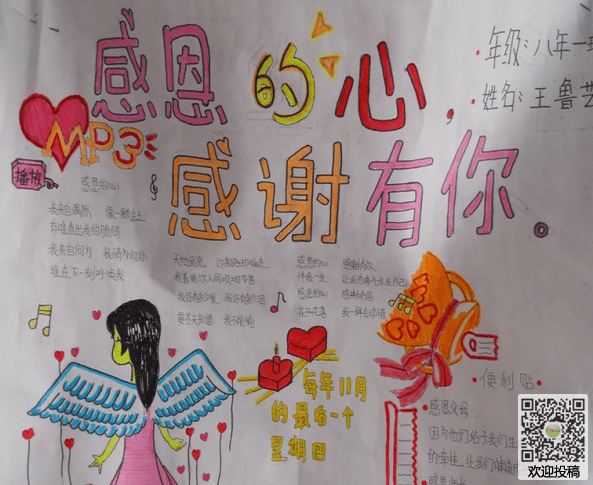 感恩的心，
感谢有你。
年级：八年一班
姓名：王鲁艺
MP3
播放
感恩的心
我来自偶然 像一颗尘土
有谁看出我的脆弱
我来自何方 我情归何处
谁在下一刻呼唤我
天地虽宽 这条路却难走
我看遍这人间坎坷辛苦
我还有多少爱 我还有多少泪
要苍天知道 我不认输
感恩的心 感谢有你
伴我一生 让我有勇气作我自己
感恩的心 感谢命运
花开花落 我一样会珍惜
每年11月
的最后一个
星期四
·便利贴·
感恩父母
因为他们给予我们生
的牵挂，让我们
感恩师长
欢迎投稿